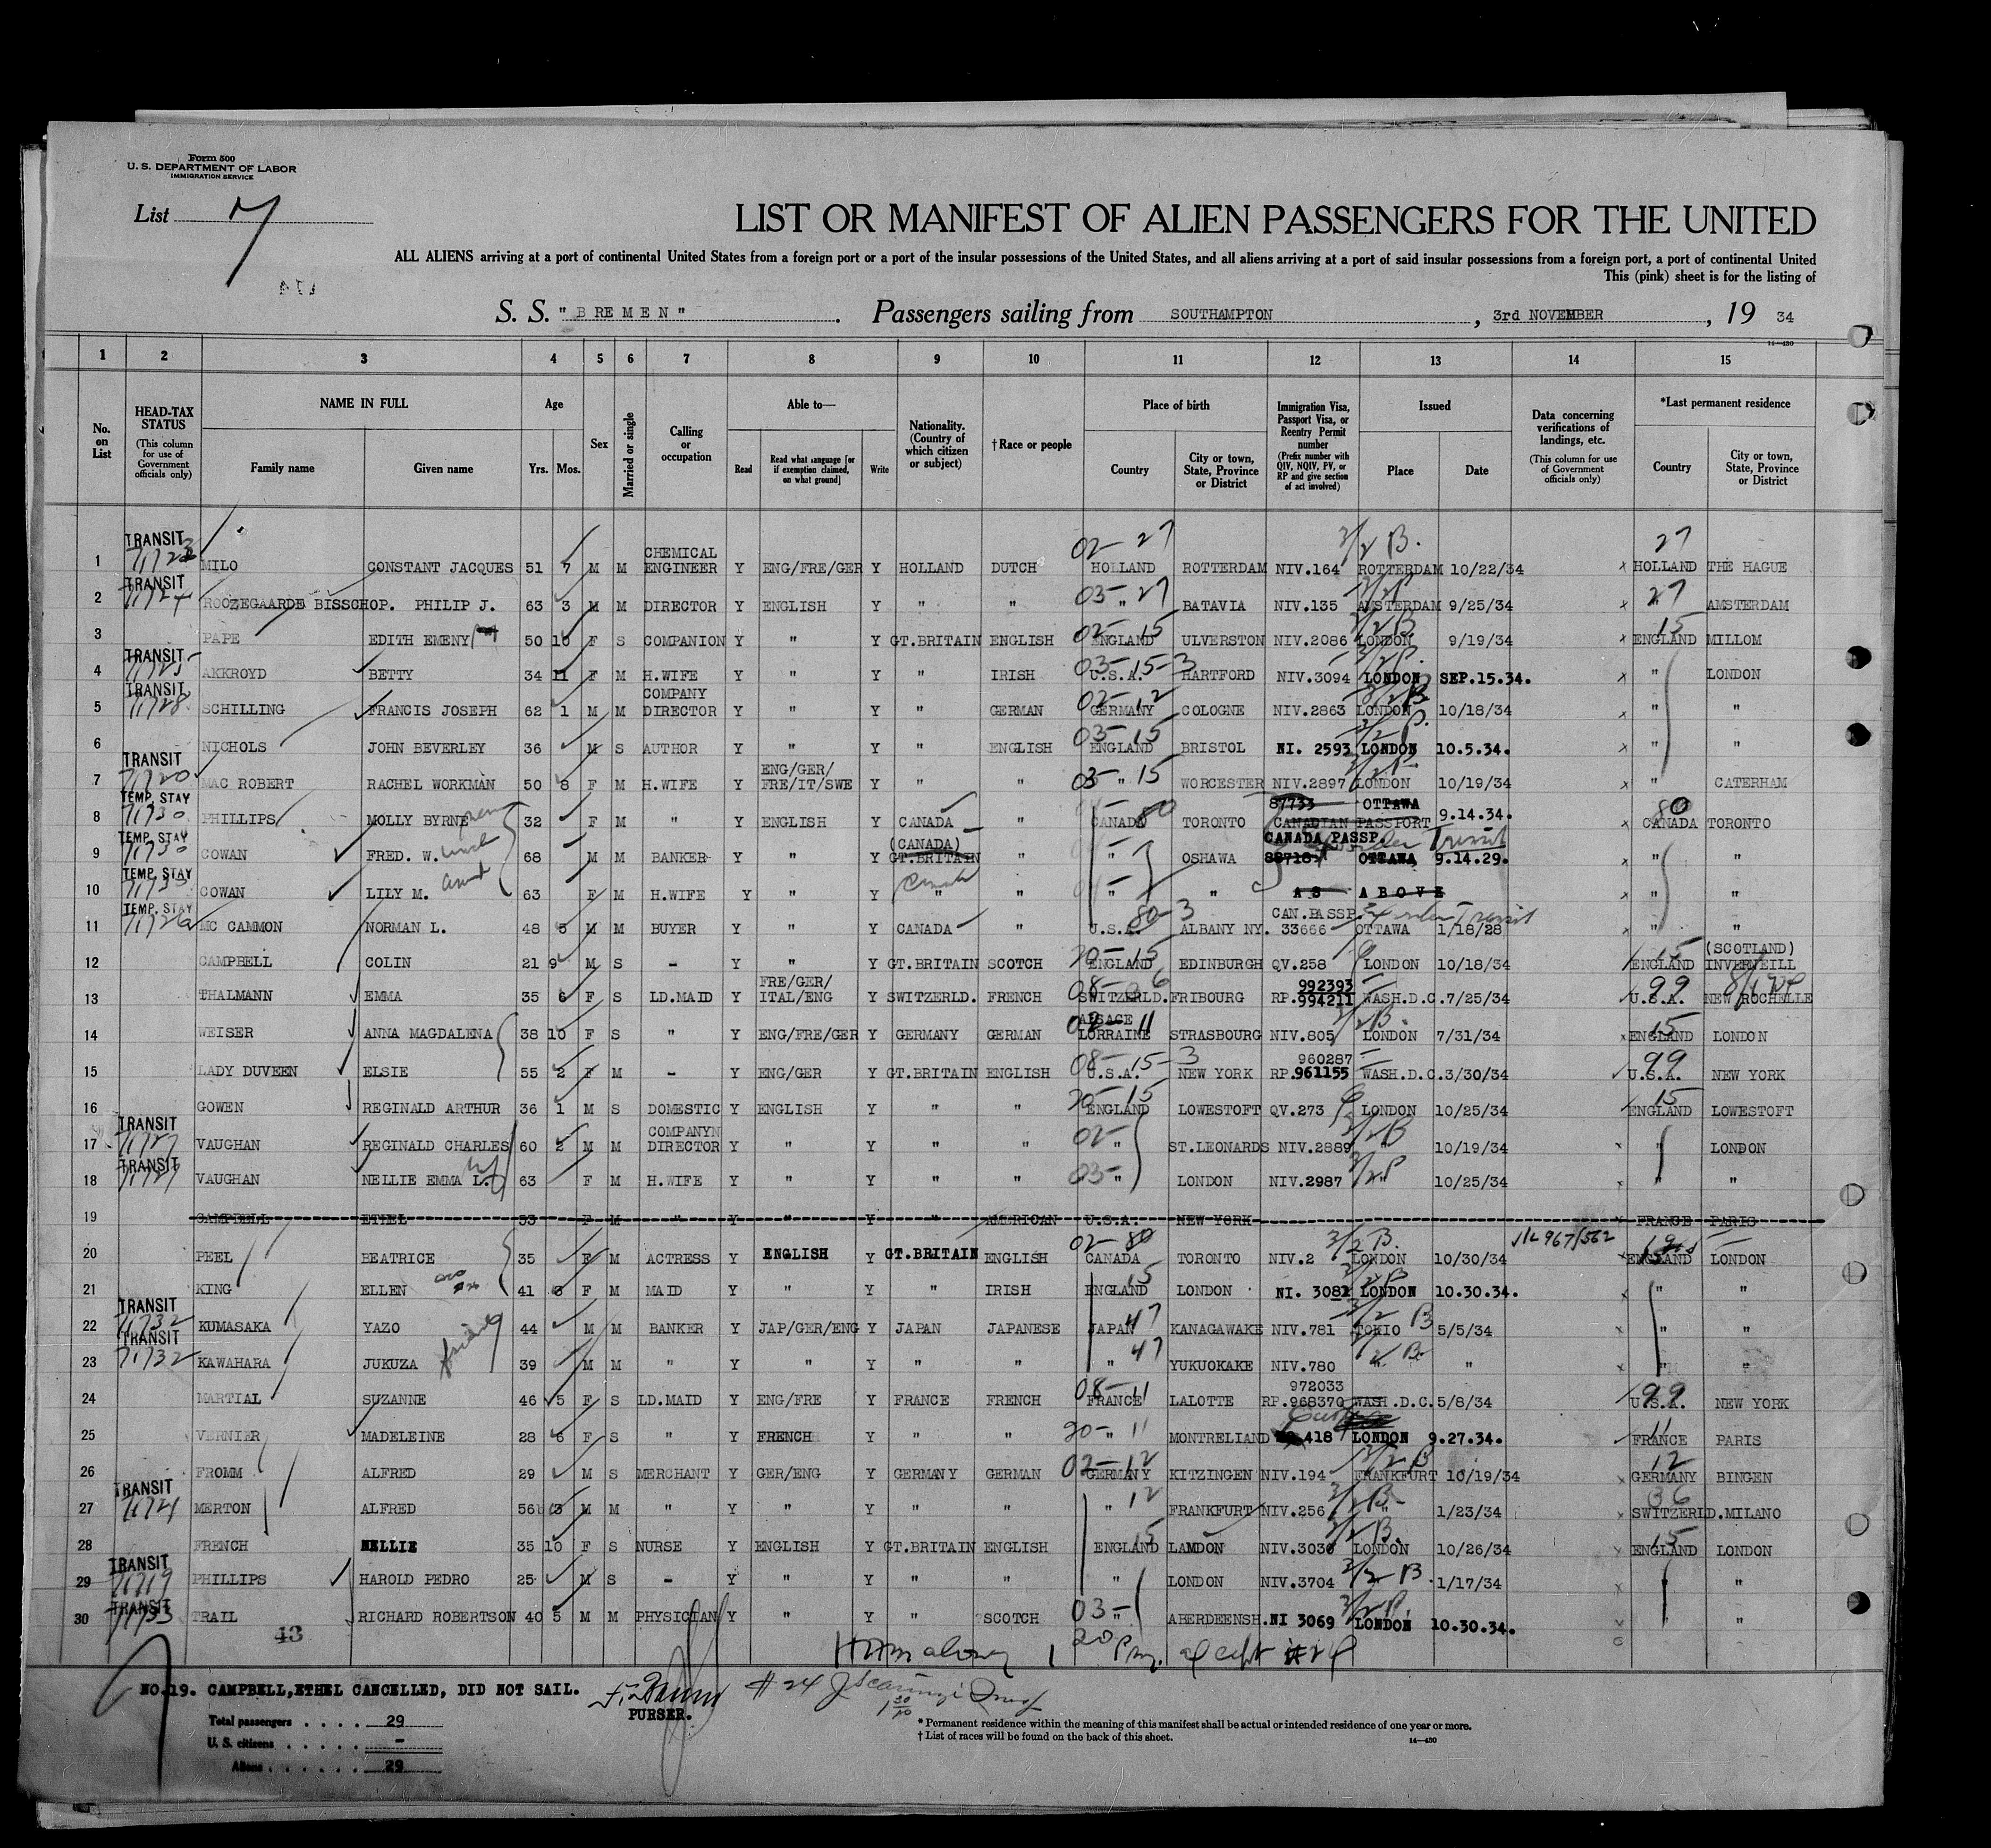 Form 500
U. S. DEPARTMENT OF LABOR
IMMIGRATION SERVICE
List 7
LIST OR MANIFEST OF ALIEN PASSENGERS FOR THE UNITED
ALL ALIENS arriving at a port of continental United States from a foreign port or a port of the insular possessions of the United States, and all aliens arriving at a port of said insular possessions from a foreign port, a port of continental United
This (pink) sheet is for the listing of
S. S. " B R E M E N ". Passengers sailing from SOUTHAMPTON, 3rd NOVEMBER, 19 34
14—430
1 2 3 4 5 6 7 8 9 10 11 12 13 14 15
No. on List
HEAD-TAX STATUS (This column for use of Government officials only)
NAME IN FULL Family name Given name
Age Yrs. Mos.
Sex
Married or single
Calling or occupation
Able to— Read Read what language [or if exemption claimed, on what ground] Write
Nationality. (Country of which citizen or subject)
† Race or people
Place of birth Country City or town, State, Province or District
Immigration Visa, Passport Visa, or Reentry Permit number (Prefix number with QIV, NQIV, PV, or RP and give section of act involved)
Issued Place Date
Data concerning verifications of landings, etc. (This column for use of Government officials only)
*Last permanent residence Country City or town, State, Province or District
1 TRANSIT MILO CONSTANT JACQUES 51 7 M M CHEMICAL ENGINEER Y ENG/FRE/GER Y HOLLAND DUTCH 02-27 HOLLAND ROTTERDAM NIV.164 3/2 B. ROTTERDAM 10/22/34 x 27 HOLLAND THE HAGUE
2 TRANSIT ROOZEGAARDE BISSCHOP. PHILIP J. 63 3 M M DIRECTOR Y ENGLISH Y " " 03-27 " BATAVIA NIV.135 AMSTERDAM 9/25/34 x 27 " AMSTERDAM
3 PAPE EDITH EMENY 50 10 F S COMPANION Y " Y GT.BRITAIN ENGLISH 02-15 ENGLAND ULVERSTON NIV.2086 3/2 B LONDON 9/19/34 x 15 ENGLAND MILLOM
4 TRANSIT AKKROYD BETTY 34 11 F M H.WIFE Y " Y " IRISH 03-15-3 U.S.A. HARTFORD NIV.3094 LONDON SEP.15.34. x " LONDON
5 TRANSIT SCHILLING FRANCIS JOSEPH 62 1 M M COMPANY DIRECTOR Y " Y " GERMAN 02-12 GERMANY COLOGNE NIV.2863 LONDON 10/18/34 x " "
6 NICHOLS JOHN BEVERLEY 36 M S AUTHOR Y " Y " ENGLISH 03-15 ENGLAND BRISTOL NI. 2593 LONDON 10.5.34. x " "
7 TRANSIT MAC ROBERT RACHEL WORKMAN 50 8 F M H.WIFE Y ENG/GER/ FRE/IT/SWE Y " " 03-15 " WORCESTER NIV.2897 LONDON 10/19/34 x " CATERHAM
8 TEMP. STAY PHILLIPS MOLLY BYRNE 32 F M " Y ENGLISH Y CANADA " 80 CANADA TORONTO 87733 OTTAWA CANADIAN PASSPORT 9.14.34. x 80 CANADA TORONTO
9 TEMP. STAY COWAN FRED. W. uncle 68 M M BANKER Y " Y (CANADA) GT.BRITAIN " " OSHAWA CANADA PASSP. 88718 OTTAWA 9.14.29. x " "
10 TEMP. STAY COWAN LILY M. aunt 63 F M H.WIFE Y " Y " " " " AS ABOVE x " "
11 TEMP. STAY MC CAMMON NORMAN L. 48 5 M M BUYER Y " Y CANADA " 80-3 U.S.A. ALBANY NY. CAN.PASSP. 33666 OTTAWA 1/18/28 x " "
12 CAMPBELL COLIN 21 9 M S - Y " Y GT.BRITAIN SCOTCH 20-15 ENGLAND EDINBURGH QV.258 LONDON 10/18/34 15 ENGLAND (SCOTLAND) INVERNEILL
13 THALMANN EMMA 35 6 F S LD.MAID Y FRE/GER/ ITAL/ENG Y SWITZERLD. FRENCH 08-36 SWITZERLD. FRIBOURG 992393 RP.994211 WASH.D.C. 7/25/34 99 U.S.A. NEW ROCHELLE
14 WEISER ANNA MAGDALENA 38 10 F S " Y ENG/FRE/GER Y GERMANY GERMAN ALSACE LORRAINE 11 STRASBOURG NIV.805 LONDON 7/31/34 x 15 ENGLAND LONDON
15 LADY DUVEEN ELSIE 55 2 F M - Y ENG/GER Y GT.BRITAIN ENGLISH 08-15-3 U.S.A. NEW YORK 960287 RP.961155 WASH.D.C. 3/30/34 99 U.S.A. NEW YORK
16 GOWEN REGINALD ARTHUR 36 1 M S DOMESTIC Y ENGLISH Y " " 20-15 ENGLAND LOWESTOFT QV.273 LONDON 10/25/34 15 ENGLAND LOWESTOFT
17 TRANSIT VAUGHAN REGINALD CHARLES 60 2 M M COMPANYN DIRECTOR Y " Y " " 02- " ST.LEONARDS NIV.2889 3/2 B " 10/19/34 " LONDON
18 TRANSIT VAUGHAN NELLIE EMMA L. 63 F M H.WIFE Y " Y " " 03- " LONDON NIV.2987 10/25/34 " "
19 CAMPBELL ETHEL 53 F M " Y " Y " AMERICAN U.S.A. NEW YORK FRANCE PARIS
20 PEEL BEATRICE 35 F M ACTRESS Y ENGLISH Y GT.BRITAIN ENGLISH 02-80 CANADA TORONTO NIV.2 3/2 B. LONDON 10/30/34 x ENGLAND LONDON
21 KING ELLEN 41 8 F M MAID Y " Y " IRISH 15 ENGLAND LONDON NI. 3082 LONDON 10.30.34. x " "
22 TRANSIT KUMASAKA YAZO 44 M M BANKER Y JAP/GER/ENG Y JAPAN JAPANESE 47 JAPAN KANAGAWAKE NIV.781 3/2 B TOKIO 5/5/34 x " "
23 TRANSIT KAWAHARA JUKUZA 39 M M " Y " Y " " 47 " YUKUOKAKE NIV.780 " " x " "
24 MARTIAL SUZANNE 46 5 F S LD.MAID Y ENG/FRE Y FRANCE FRENCH 08-11 FRANCE LALOTTE 972033 RP.968370 WASH.D.C. 5/8/34 99 U.S.A. NEW YORK
25 VERNIER MADELEINE 28 6 F S " Y FRENCH Y " " 20-11 " MONTRELIAND 418 LONDON 9.27.34. 11 FRANCE PARIS
26 FROMM ALFRED 29 M S MERCHANT Y GER/ENG Y GERMANY GERMAN 02-12 GERMANY KITZINGEN NIV.194 3/2 B FRANKFURT 10/19/34 x 12 GERMANY BINGEN
27 TRANSIT MERTON ALFRED 56 3 M M " Y " Y " " 12 " FRANKFURT NIV.256 3/2 B " 1/23/34 x 36 SWITZERLD. MILANO
28 FRENCH NELLIE 35 10 F S NURSE Y ENGLISH Y GT.BRITAIN ENGLISH 15 ENGLAND LAMDON NIV.3036 3/2 B. LONDON 10/26/34 15 ENGLAND LONDON
29 TRANSIT PHILLIPS HAROLD PEDRO 25 M S - Y " Y " " " LONDON NIV.3704 3/2 B. 1/17/34 x " "
30 TRANSIT TRAIL RICHARD ROBERTSON 40 5 M M PHYSICIAN Y " Y " SCOTCH 03- " ABERDEENSH. NI 3069 LONDON 10.30.34. " "
43
NO.19. CAMPBELL,ETHEL CANCELLED, DID NOT SAIL.
PURSER.
# 24
Total passengers . . . . 29
U. S. citizens . . . . . -
Aliens . . . . . . 29
* Permanent residence within the meaning of this manifest shall be actual or intended residence of one year or more.
† List of races will be found on the back of this sheet.
14—430